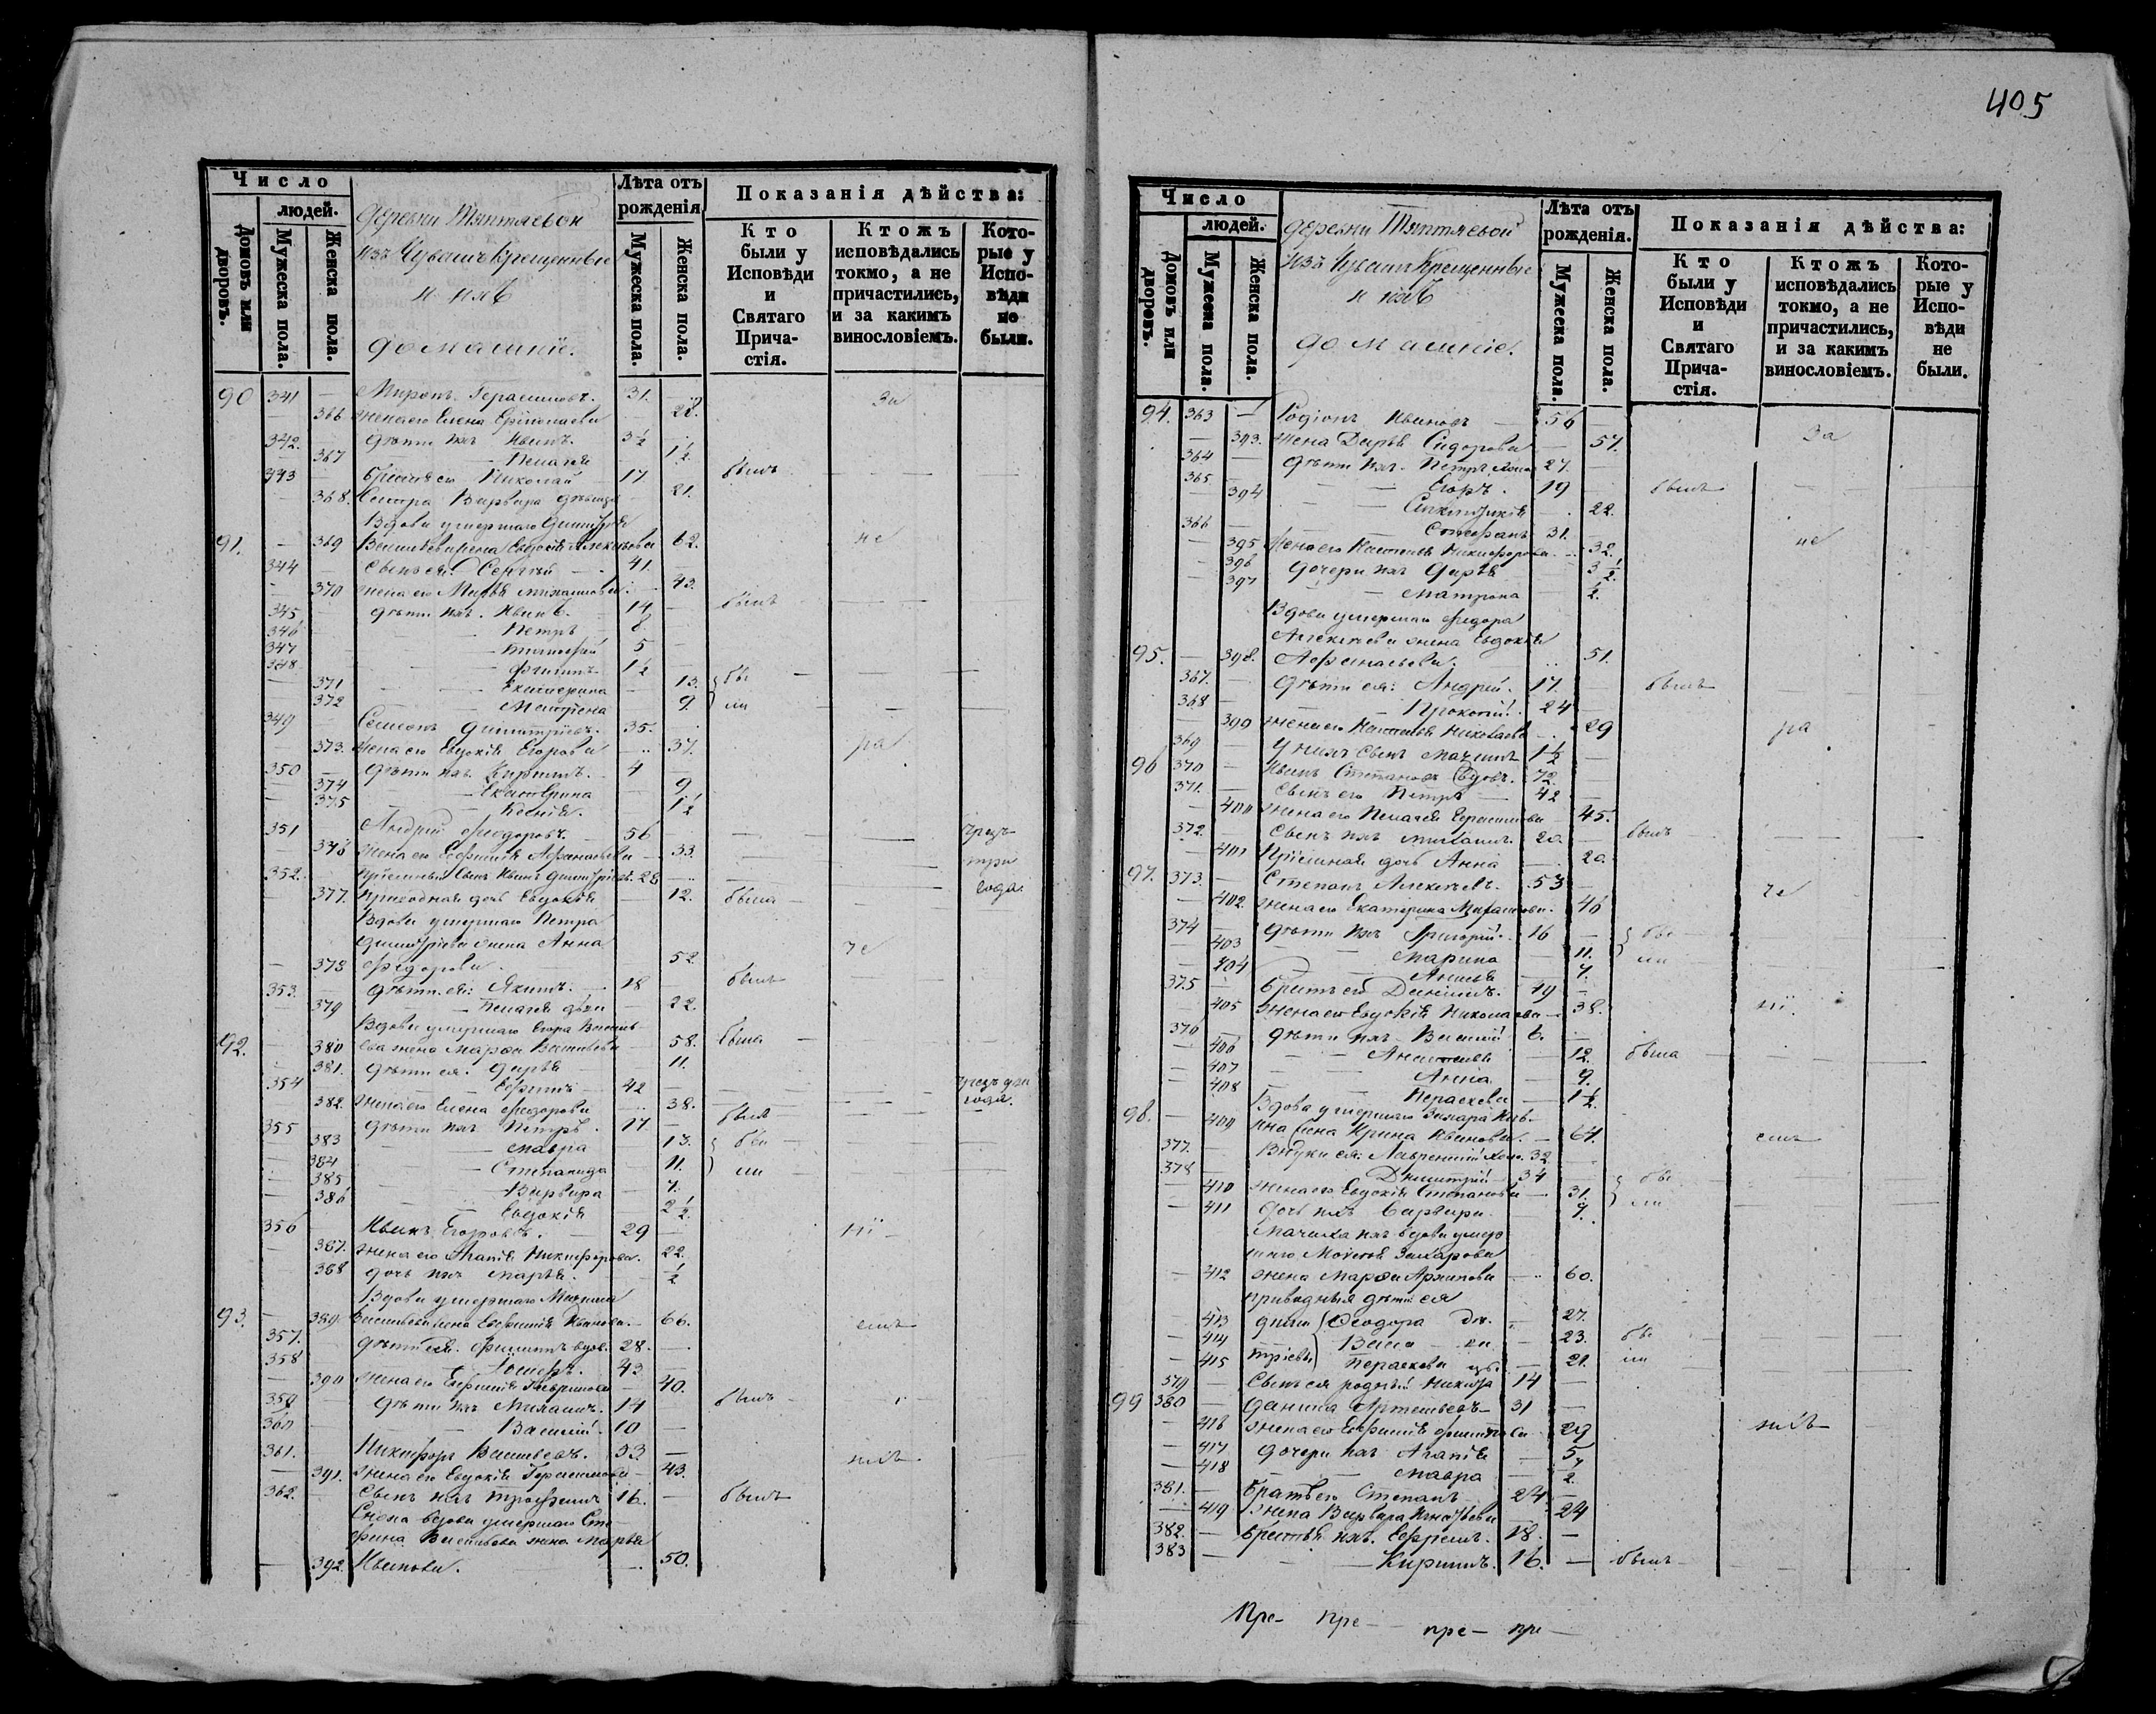 405
Число
людей.
Домовъ или дворовъ.
Мужеска пола.
Женска пола.
деревни Тяптяевой
изъ Чувашъ Крещенные
и ихъ
домашніе.
Лѣта отъ рожденія
Мужеска пола.
Женска пола.
Показанія дѣйства:
Кто были у Исповѣди и Святаго Причастія.
Ктожъ исповѣдались токмо, а не причастились, и за какимъ винословіемъ.
Которые у Исповѣди не были.
90 341 — Миронъ Герасимовъ. 31. — за
366 жена его Елена 28.
342. — дѣти ихъ Иванъ. 3½
367 — Пелагея 1½
343 — Братъ его Николай 17 былъ — —
368. Сестра Варвара дѣвица 21.
Вдова умершаго Димитрія
91. — 369 Васильева жена Евдокія Алексѣева 62. не
344 — Сынъ ея Сергѣй — 41.
370 жена его Марѳа 43.
345 — дѣти ихъ. Иванъ. 14 былъ — —
346 Петръ 8
347 Тимоѳей 5
348 Филипъ 1½
371 — Екатерина 13. бы — —
372 — Матрена 9. ли — —
349 Семенъ Димитріевъ. 35.
373. жена его Евдокія Егорова 37. ра
350 — дѣти ихъ. Кирилъ. 4
374 — Екатерина 9
375 — Ксенія. 1½
351 Андрей Ѳеодоровъ. 56 — — чрезъ
376 жена его Афанасьева 33. — — три
352. — пріемный Сынъ Иванъ Димитріевъ. 28 — — года.
377. приводная дочь Евдокія 12. была — —
Вдова умершаго Петра
Димитріева жена Анна
— 378 Ѳедорова. 52 че
353. — дѣти ея: Якимъ. — 18 былъ — —
379 — Пелагея 22.
Вдова умершаго Егора Василь-
92. — 380 ева жена Марѳа Васильева 58. была — —
381. дѣти ея. Дарья 11.
354 — Ефимъ 42 — — чрезъ два
382. жена его Елена Ѳедорова 38. — — года.
355 — дѣти ихъ Петръ. 17. былъ — —
383 — Мавра 13. бы — —
384 — Степанида 11. ли — —
385 — Варвара 7.
386 — Евдокія 2½
356 — Иванъ Егоровъ. 29 ні
387. жена его Агапія Никифорова. 22.
388 дочь ихъ Марья. ½
Вдова умершаго Максима
93. — 389 Васильева жена Евфимія Иванова. 66. емъ
357. — дѣти ея. Филипъ вдов. 28.
358 — 43
390 жена его Евфимія Гавриилова 40.
359 — дѣти ихъ Михаилъ. 14 былъ — —
360 — Василій 10
361. Никифоръ Васильевъ. 53. —
— 391. жена его Евдокія Герасимова 43.
362. — Сынъ ихъ Трофимъ 16. — былъ — —
Сноха вдова умершаго Сте-
фана Васильева жена Марья
— 392. Иванова. 50.
Число
людей.
Домовъ или дворовъ.
Мужеска пола.
Женска пола.
деревни Тяптяевой
изъ Чувашъ Крещенные
и ихъ
домашніе.
Лѣта отъ рожденія.
Мужеска пола.
Женска пола.
Показанія дѣйства:
Кто были у Исповѣди и Святаго Причастія.
Ктожъ исповѣдались токмо, а не причастились, и за какимъ винословіемъ.
Которые у Исповѣди не были.
94. 363 — Родіонъ Ивановъ 56 за
— 393. жена Дарья Сидорова 57.
364 — дѣти ихъ. Петръ 27.
365 — Егоръ. 19 былъ — —
394 — 22.
366 — Стефанъ 31. не
395 жена его Настасья Никифорова. 32.
396 дочери ихъ Дарья 3½
397 — Матрона ½
Вдова умершаго Ѳедора
Алексѣева жена Евдокія
95. — 398. Афанасьева. 51.
367. — дѣти ея: Андрей. 17. былъ — —
368 — Прокопій. 24
399 жена его Настасья Николаева 29 ра
369 — У нихъ Сынъ Максимъ 1½
96 370 — Иванъ Степановъ Вдов. 72.
371. — Сынъ его Петръ 42
400 жена его Пелагея Герасимова 45.
372. — Сынъ ихъ Михаилъ. 20. былъ — —
401 Пріемная дочь Анна 20.
97. 373. — Степанъ Алексѣевъ. 53 че
402. жена его Екатерина 46
374 — дѣти ихъ Григорій. 16 бы — —
403 — Марина 11. ли — —
404 — Анисья 7.
375 — братъ его 49
405 жена его Евдокія Николаева 38. ні
376 — дѣти ихъ Василій 6
406 — Анастасія 12. была — —
407 — Анна 9.
408 — Параскева 1½
Вдова умершаго Захара Ива-
98. — 409 на жена Ирина Иванова. — 67. емъ
377. — Внуки ея: Лаврентій 32
378 — Димитрій 34
410 жена его Евдокія Степанова 31. бы — —
411 дочь ихъ Варвара. 7. ли — —
Мачиха ихъ вдова умер-
шаго Моисея Захарова
— 412 жена Марѳа Архипова 60.
приводныя дѣти ея
413 Дими Ѳеодора дѣ. 27.
414 Васса ви 23. бы — —
415 тріевы Параскева цы. 21. ли — —
379 — Сынъ ея родный Никита 14
99 380 — Данила Артемьевъ 31
— 416 жена его Евфимія 29
417 дочери ихъ Агапія 5
418 — Мавра ½
381. — братъ его Степанъ 24
— 419 жена Варвара Игнатьева 24
382. — братья ихъ. Ефремъ. 18. —
383 — Кирилъ. 16. — былъ —
Пре- пре- пре- пре-